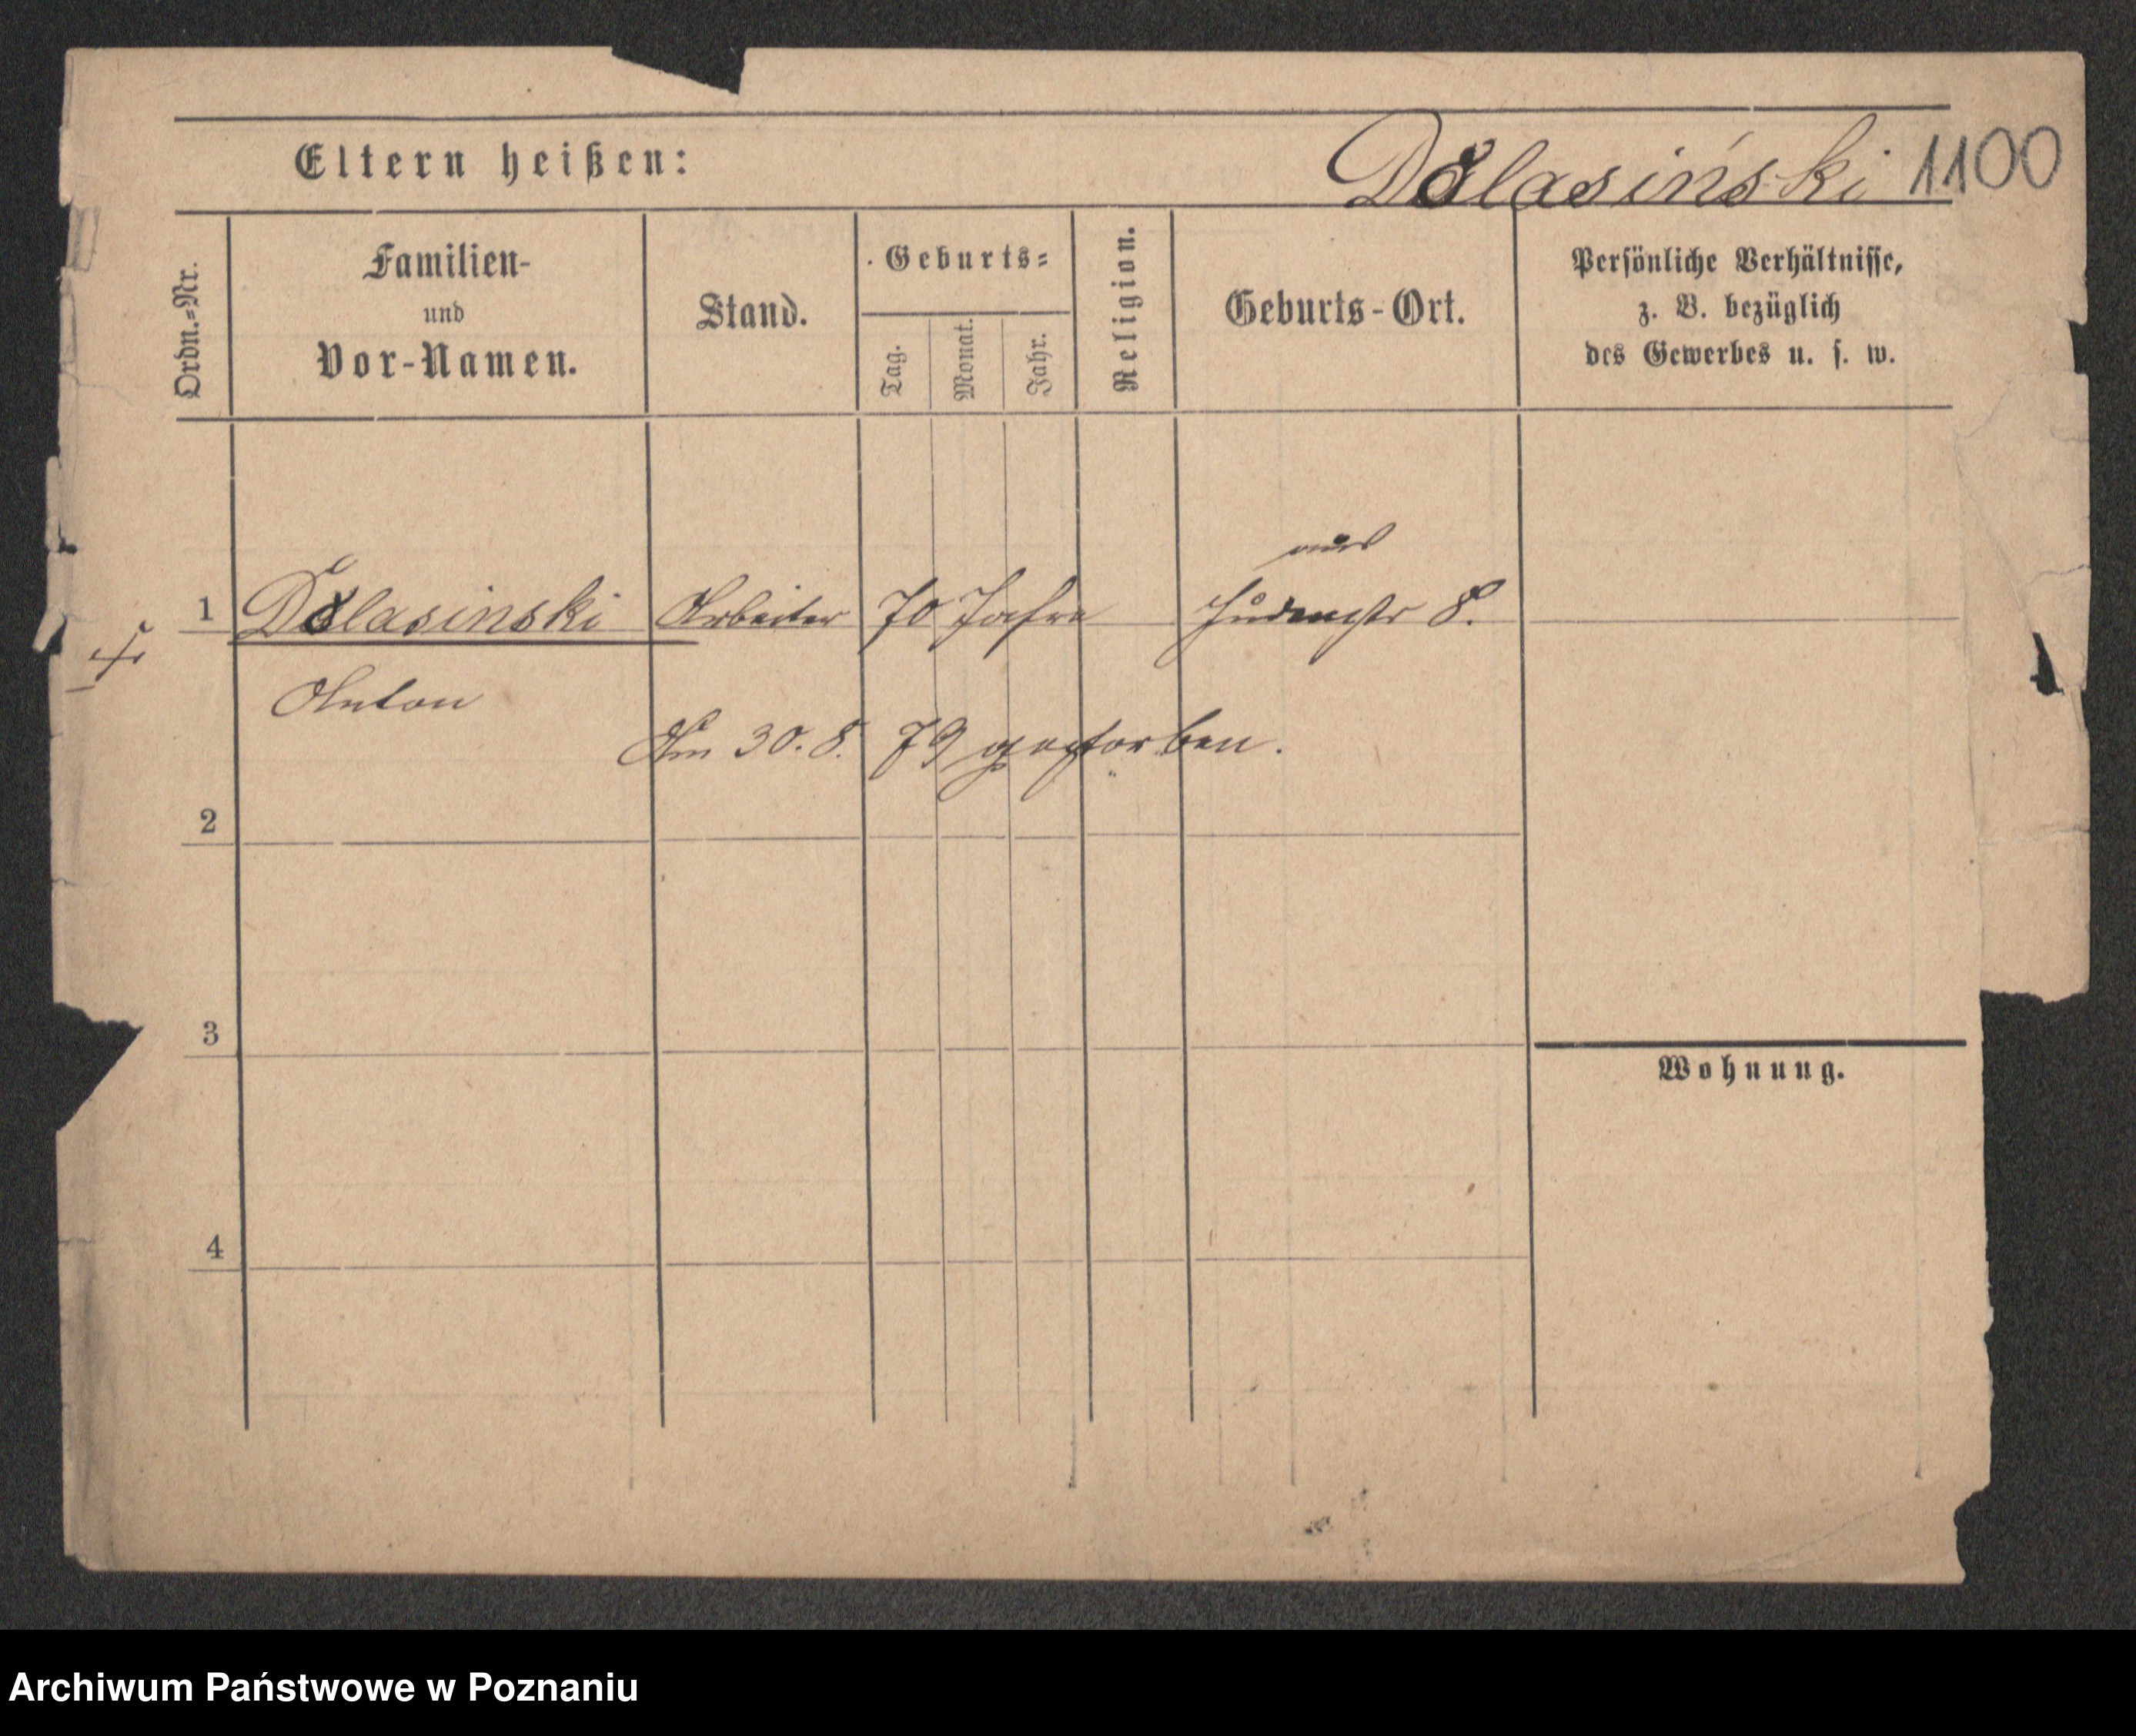 Eltern heißen:
Dolasiński 1100
Ordn.=Nr.
Familien-
und
Vor-Namen.
Stand.
Geburts=
Tag.
Monat.
Jahr.
Religion.
Geburts-Ort.
Persönliche Verhältnisse,
z. B. bezüglich
des Gewerbes u. s. w.
aus
1 Dolasinski Arbeiter 70 Jahre Judenstr 8.
Anton
Am 30. 8. 79 gestorben.
2
3
Wohnung.
4
Archiwum Państwowe w Poznaniu